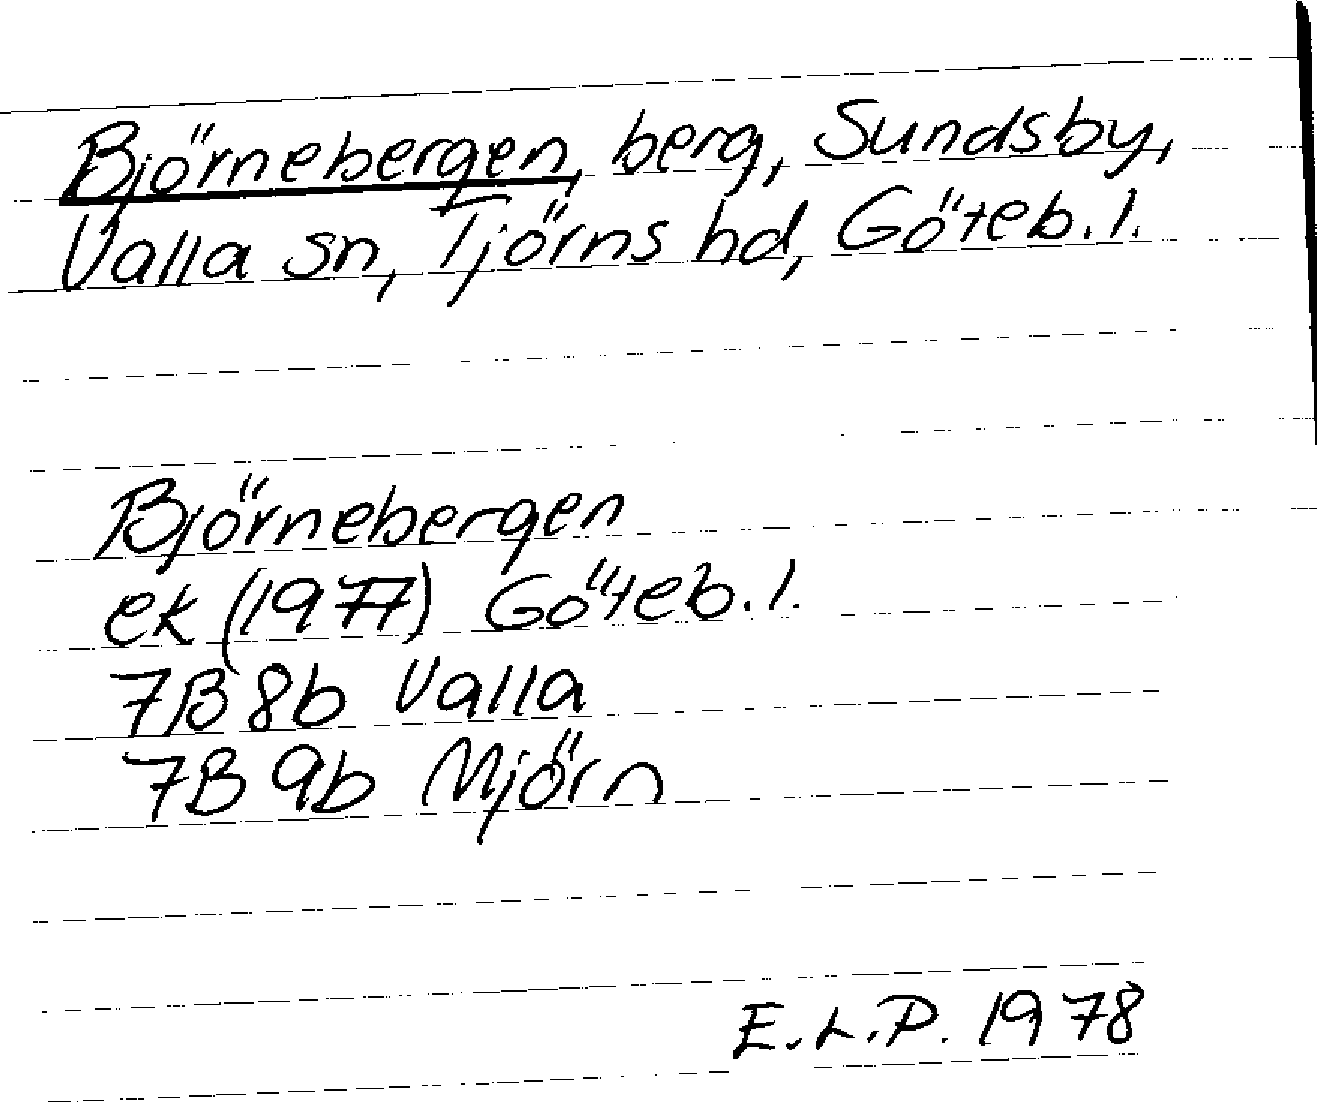 Björnebergen, berg, Sundsby,
Valla sn, Tjörns hd, Göteb. l.
Björnebergen
ek (1977) Göteb. l.
7B 8b Valla
7B 9b Mjörn
E.L.P. 1978